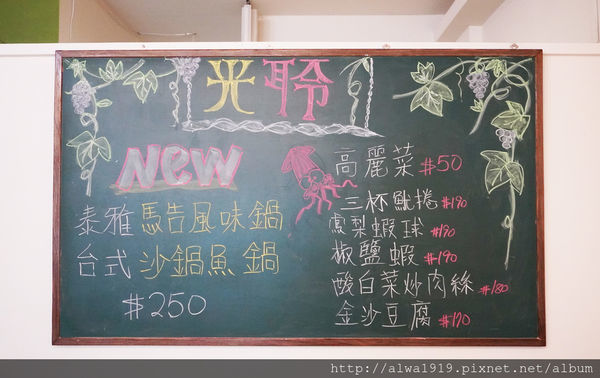 光聆
New
泰雅馬告風味鍋
台式沙鍋魚鍋
#250
高麗菜 #50
三杯魷捲 #190
鳳梨蝦球 #190
椒鹽蝦 #190
酸白菜炒肉絲 #180
金沙豆腐 #170
http://alwa1919.pixnet.net/album